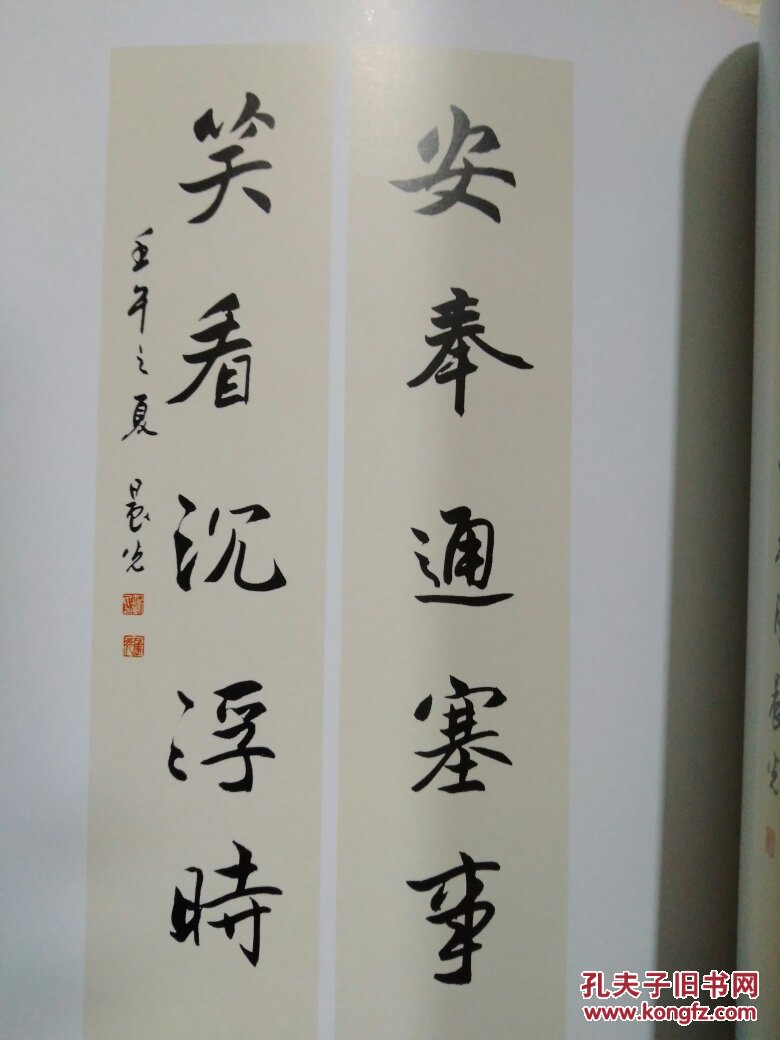 安奉通塞事
笑看沉浮時
壬午之夏 晨光
孔夫子旧书网
www.kongfz.com